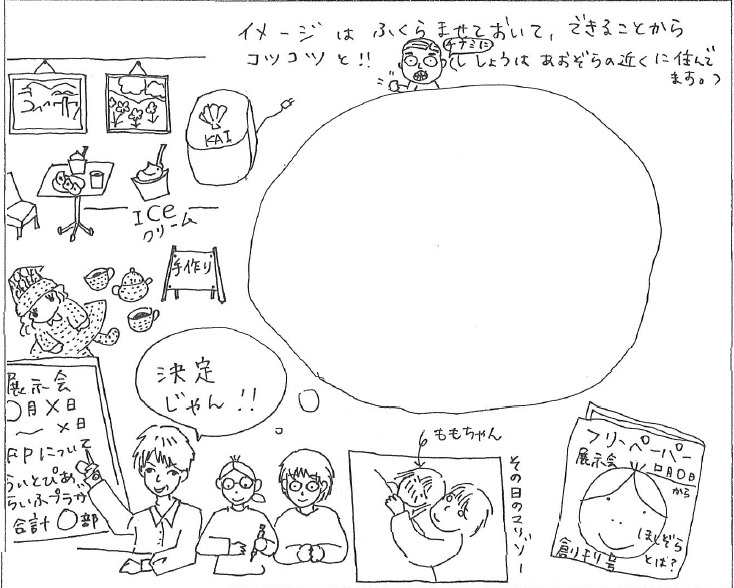 イメージは ふくらませておいて、できることから
コツコツと!!
チナミに
ししょうは あおぞらの近くに住んで
ます。
KAI
ICe
クリーム
手作り
決定
じゃん!!
展示会
〇月×日
〜 ×日
FPについて
ういとぴあ
らいふプラザ
合計 〇部
ももちゃん
その日のマリゾー
フリーペーパー
展示会
□月〇日
から
ほしぞら
とは?
創刊号